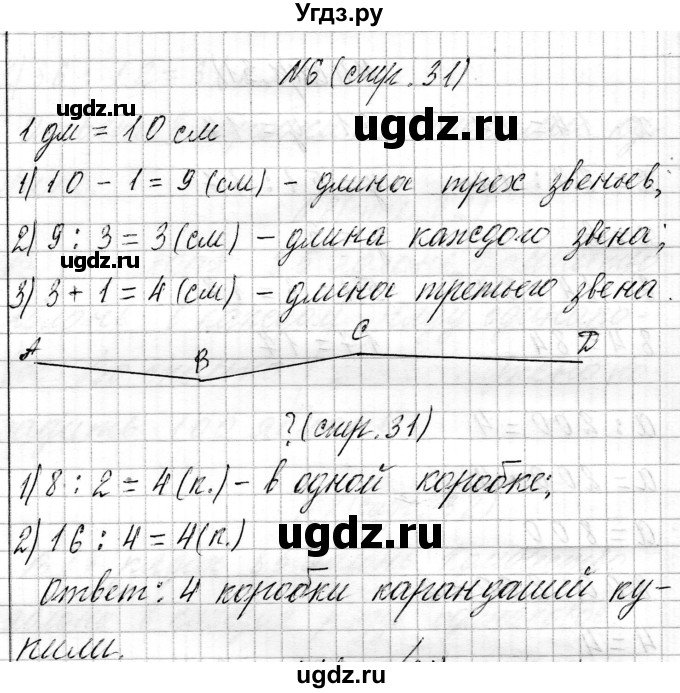 Угдз.ру
N6 (стр. 31)
ugdz.ru ugdz.ru
1 дм = 10 см
1) 10 - 1 = 9 (см) - длина трех звеньев;
2) 9 : 3 = 3 (см) - длина каждого звена;
ugdz.ru
3) 3 + 1 = 4 (см) - длина третьего звена.
A B C D
? (стр. 31)
1) 8 : 2 = 4 (п.) - в одной коробке;
ugdz.ru
2) 16 : 4 = 4 (п.)
Ответ: 4 коробки карандашей ку-
пили.
ugdz.ru ugdz.ru